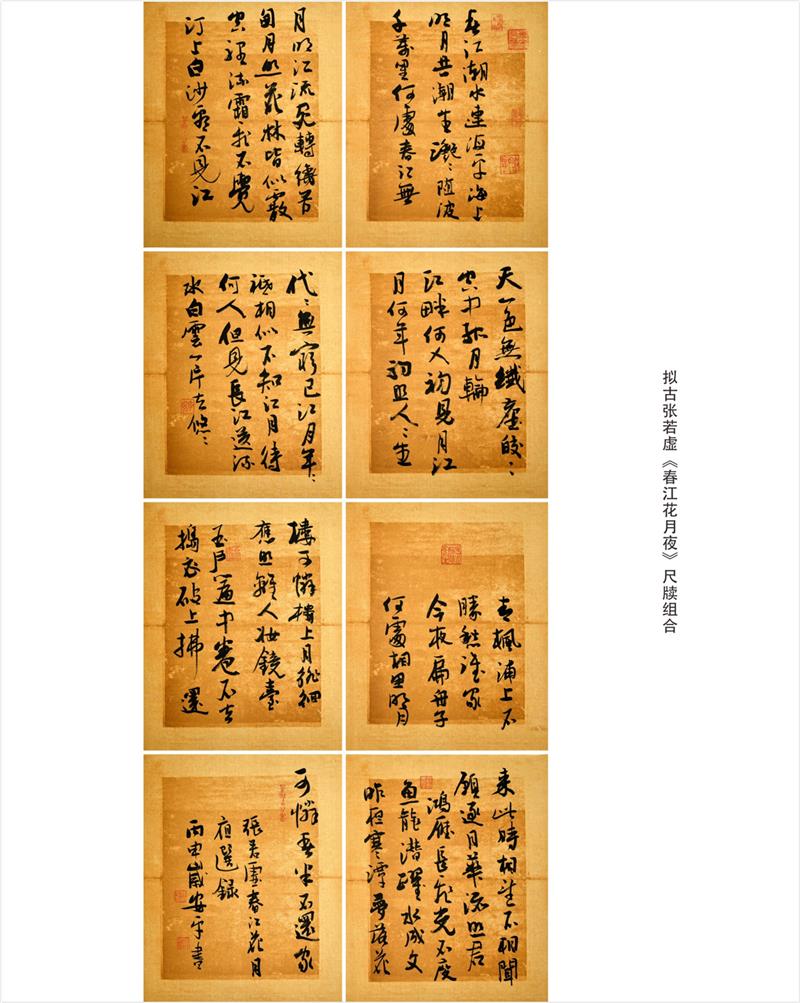 春江潮水連海平海上
明月共潮生灩〻隨波
千萬里何處春江無
月明江流宛轉繞芳
甸月照花林皆似霰
空裡流霜飛不覺
汀上白沙看不見江
天一色無纖塵皎〻
空中孤月輪
江畔何人初見月江
月何年初照人〻生
代〻無窮已江月年〻
祗相似不知江月待
何人但見長江送流
水白雲一片去悠〻
青楓浦上不
勝愁誰家
今夜扁舟子
何處相思明月
樓可憐樓上月徘徊
應照離人妝鏡臺
玉戶簾中卷不去
搗衣砧上拂還
來此時相望不相聞
願逐月華流照君
鴻雁長飛光不度
魚龍潛躍水成文
昨夜寒潭夢落花
可憐春半不還家
張若虛春江花月
夜選録
丙申歲安平書
拟古张若虚《春江花月夜》尺牍组合